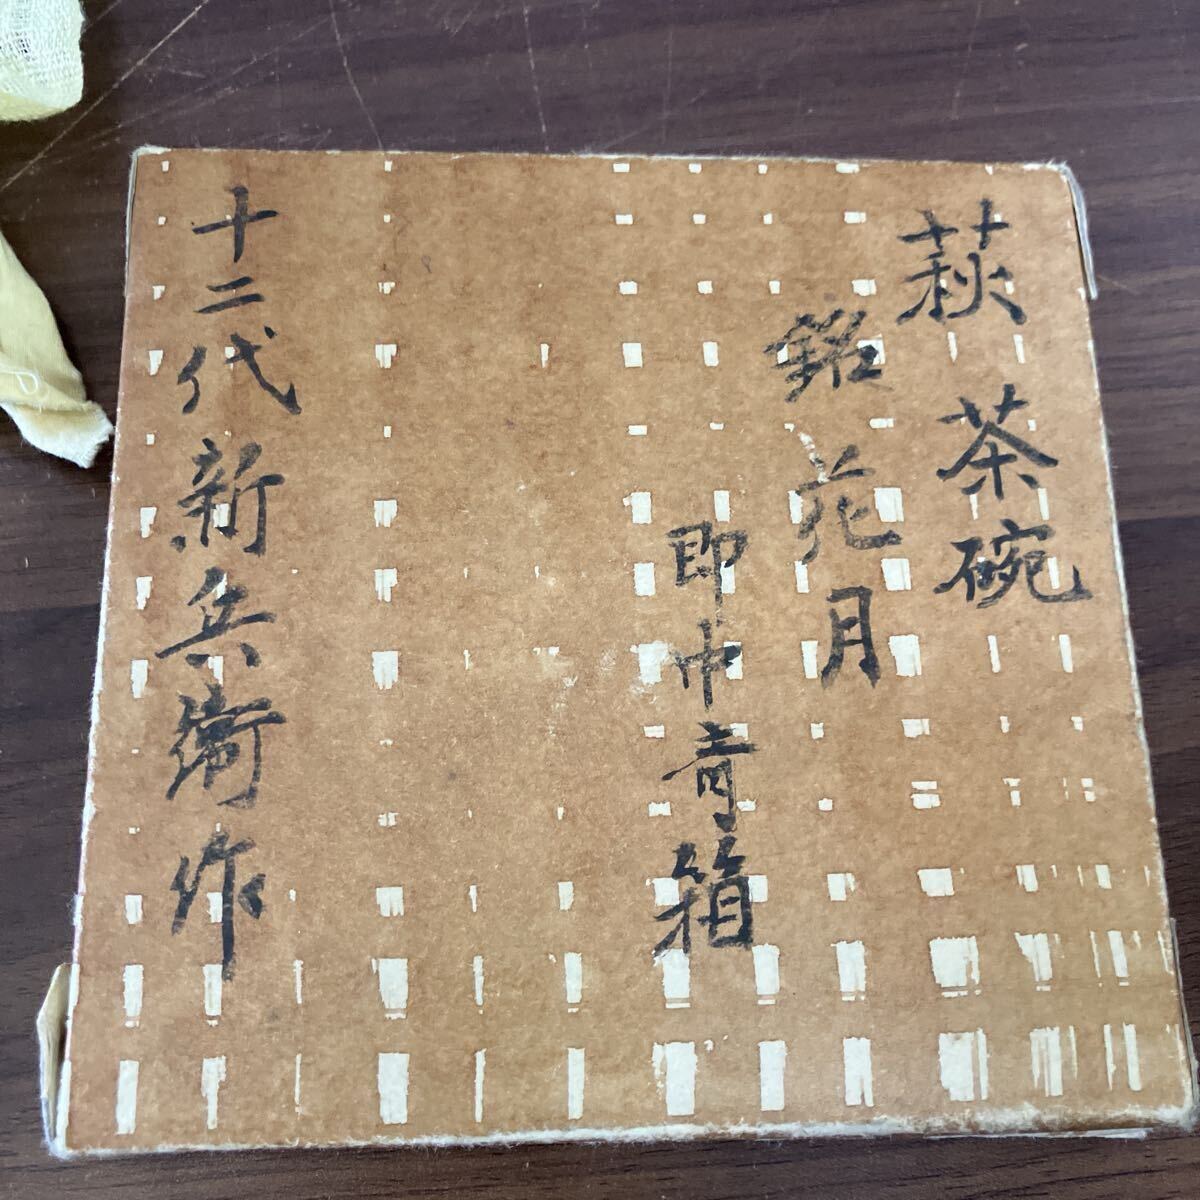 萩茶碗
銘花月
即中斎箱
十二代新兵衛作